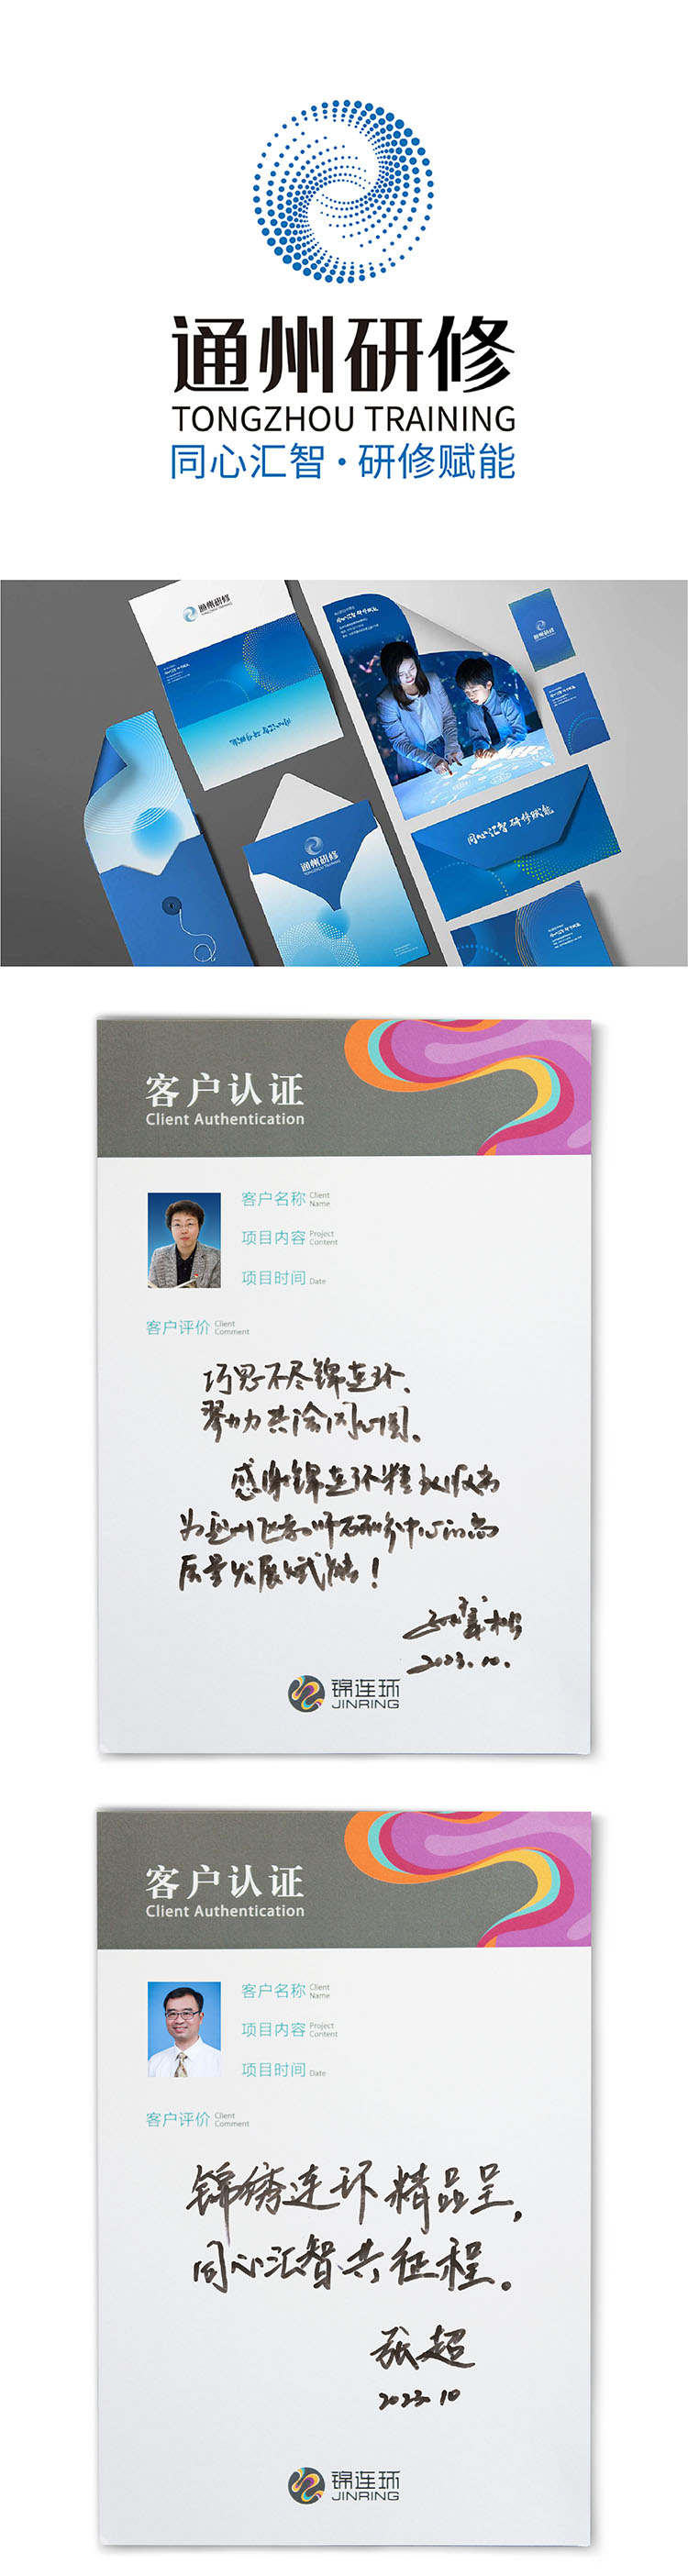 通州研修
TONGZHOU TRAINING
同心汇智·研修赋能
通州研修
TONGZHOU TRAINING
同心汇智 研修赋能
通州研修
通州研修
TONGZHOU TRAINING
同心汇智 研修赋能
客户认证
Client Authentication
客户名称 Client Name
项目内容 Project Content
项目时间 Date
客户评价 Client Comment
巧思不尽锦连环、
翠力共绘同心圆。
感谢锦连环精致服务
为通州区教师研修中心的高
质量发展赋能！
2023.10.
锦连环
JINRING
客户认证
Client Authentication
客户名称 Client Name
项目内容 Project Content
项目时间 Date
客户评价 Client Comment
锦绣连环精品呈，
同心汇智共征程。
张超
2023.10
锦连环
JINRING